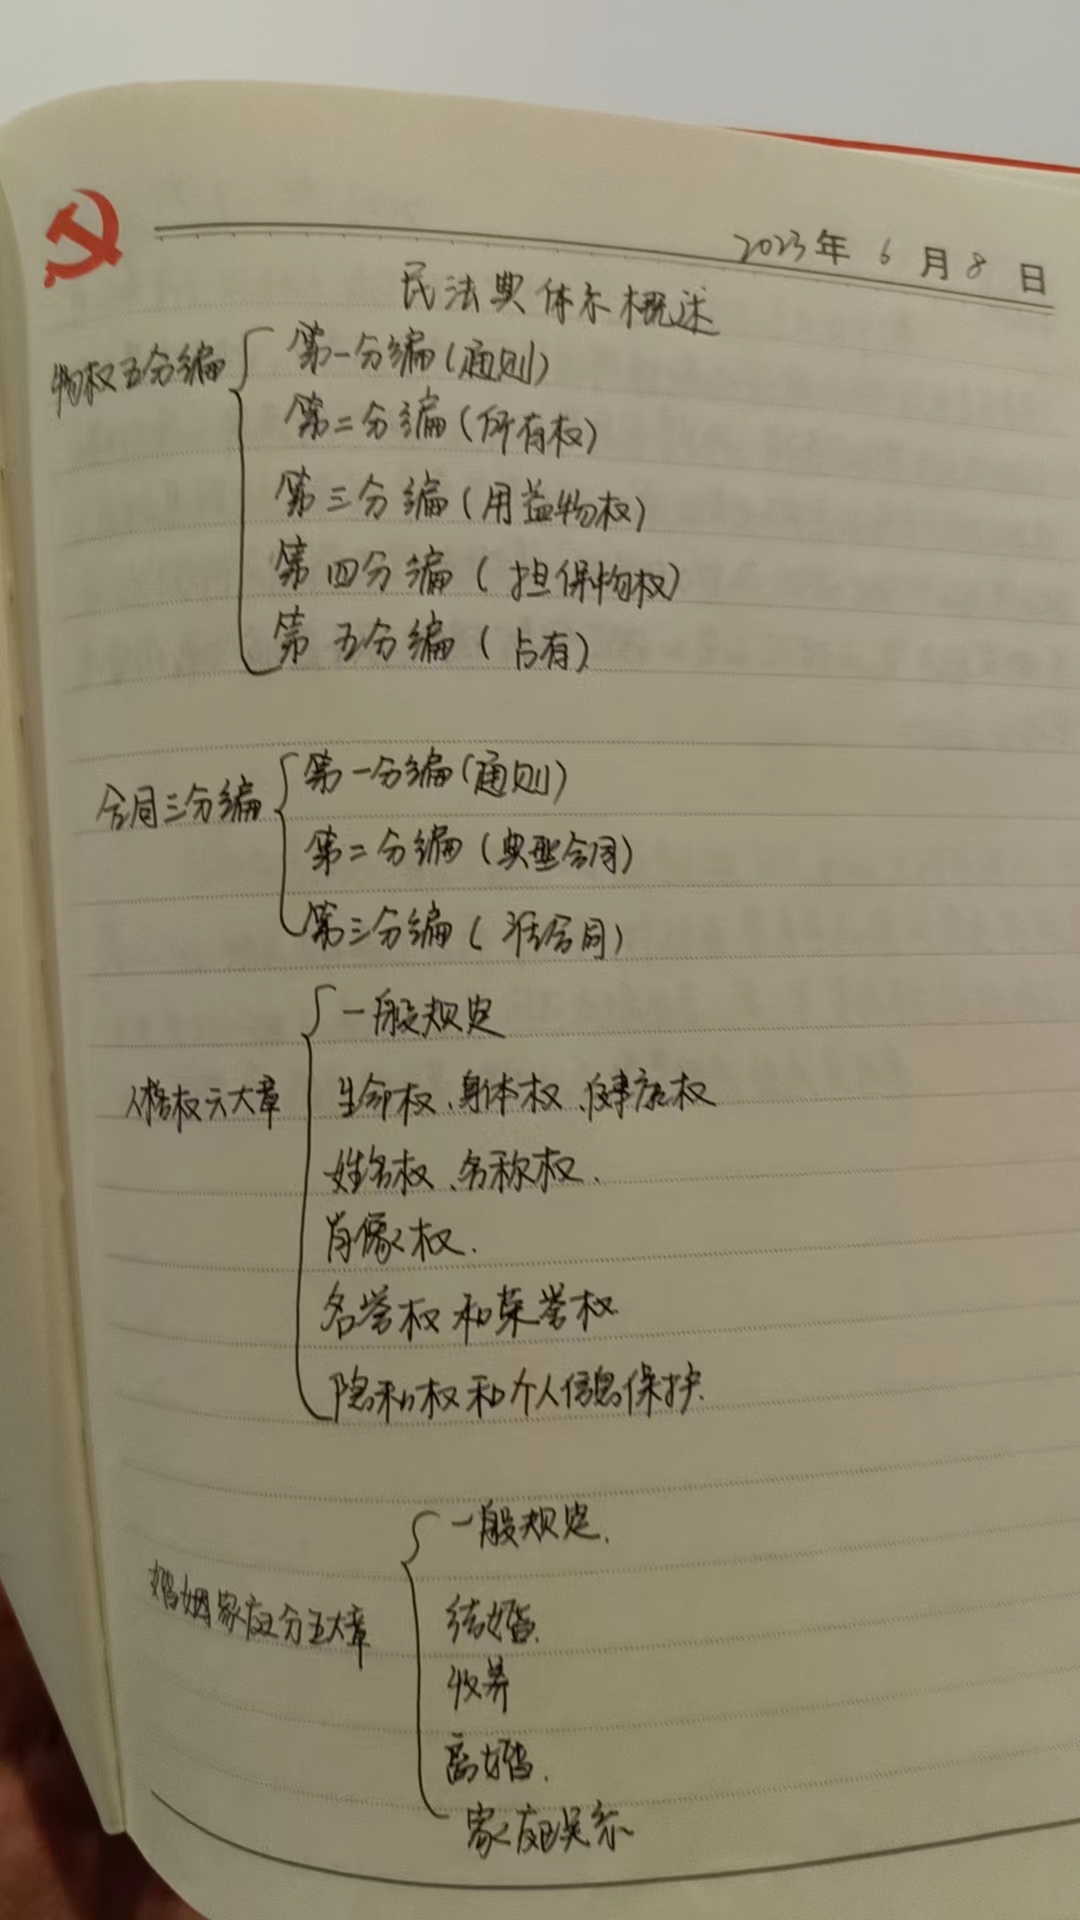 2023年 6月8日
民法典体系概述
物权五分编
第一分编(通则)
第二分编(所有权)
第三分编(用益物权)
第四分编(担保物权)
第五分编(占有)
合同三分编
第一分编(通则)
第二分编(典型合同)
第三分编(准合同)
人格权六大章
一般规定
生命权、身体权、健康权
姓名权、名称权.
肖像权.
名誉权和荣誉权
隐私权和个人信息保护.
婚姻家庭分五大章
一般规定.
结婚.
收养
离婚.
家庭关系